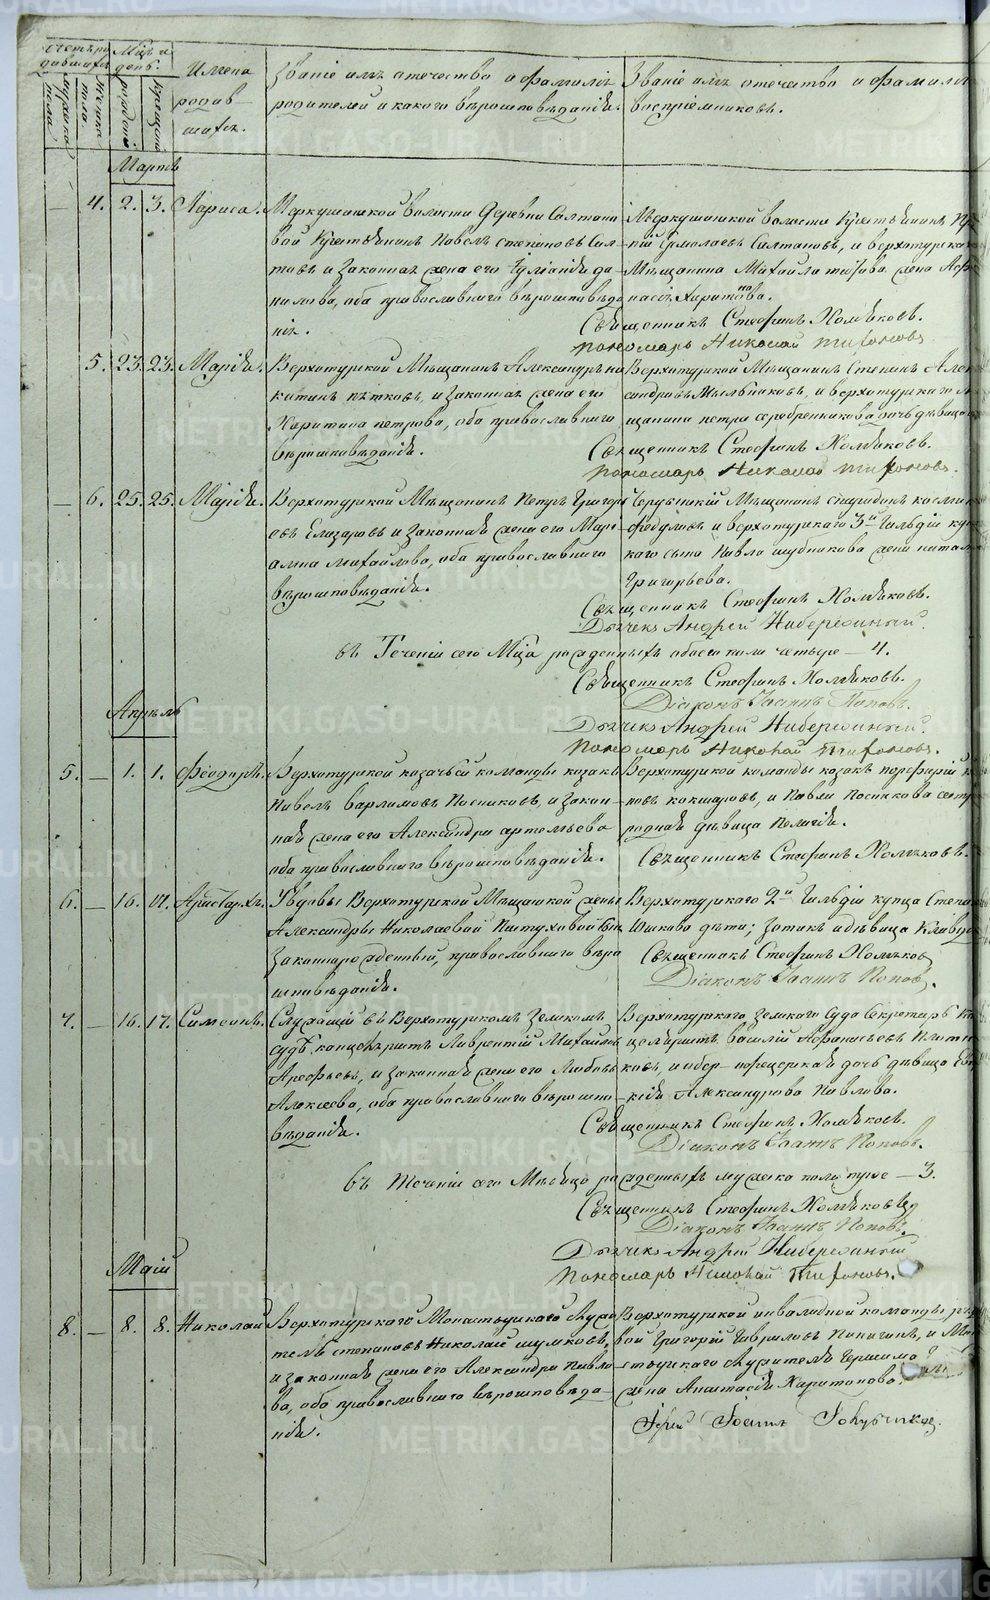 счетъ ро
дившихся
Мѣц и
день.
мужеска
пола
женска
пола
рожденія
крещенія
Имена
родив-
шихся.
Званіе имя отечество и фамилія
родителей и какого вѣроисповѣданія.
Званіе имя отечество и фамилія
воспріемниковъ.
Мартъ
— 4. 2. 3. Лариса.
Меркушинской волости Деревни Салтано
вой Крестьянинъ Павелъ Степановъ Сал-
товъ и законная жена его Гуліанія Да-
нилова, оба православнаго вѣроисповѣда
нія.
Меркушинской волости Крестьянинъ
Ермолаевъ Салтановъ, и верхотурска
Мѣщанина Михайла Титова жена
Харитонова.
Священникъ Стефанъ Хомяковъ.
Пономарь Николай Тифоновъ
5. 23. 23. Марія.
Верхотурской Мѣщанинъ Александръ Ни
китинъ Пѣтковъ, и законная жена его
Харитина Петрова, оба православнаго
вѣроисповѣданія.
Верхотурской Мѣщанинъ Степанъ Алек
сандровъ Мыльниковъ, и верхотурскаго м
щанина Петра Серебренникова дочь дѣвица
Священникъ Стефанъ Хомяковъ.
Пономарь Николай Тифоновъ.
— 6. 25. 25. Марія.
Верхотурской Мѣщанинъ Петръ Григорь
евъ Елизаровъ и законная жена его Марі-
амна Михайлова, оба православнаго
вѣроисповѣданія.
Мѣщанинъ Спиридонъ Космин
Федуловъ и верхотурскаго 3й Гильдіи куп
каго сына Павла Шубникова жена Натал
Григорьева.
Священникъ Стефанъ Хомяковъ.
Дьячекъ Андрей Набережный.
Въ Теченіи сего Мѣца рожденныхъ обоего пола четыре — 4.
Священникъ Стефанъ Хомяковъ.
Діаконъ Іоаннъ Поповъ.
Дьячекъ Андрей Набережный.
Пономарь Николай Тифоновъ.
Апрель
5. — 1. 1. Феодоръ.
Верхотурской казачьей команды казакъ
Павелъ Варламовъ Постниковъ, и закон-
ная жена его Александра Артемьева
оба православнаго вѣроисповѣданія.
Верхотурской команды казакъ Порфирій
Кокшаровъ, и Павла Постникова сест
родная дѣвица Пелагія.
Священникъ Стефанъ Хомяковъ.
6. — 16. 17. Аристархъ.
У вдовы Верхотурской Мѣщанской жены
Александры Николаевой Пастуховой
законнорожденный, православнаго вѣро
исповѣданія.
Верхотурскаго 2й Гильдіи купца Степа
Шикова дѣти; Зотикъ и дѣвица Клавд
Священникъ Стефанъ Хомяков
Діаконъ Іоаннъ Попов.
7. — 16. 17. Симеонъ.
Служащій въ Верхотурскомъ Земскомъ
судѣ канцеляристъ Лаврентій Михайловъ
Арефьевъ, и законная жена его Любовь
Алексеева, оба православнаго вѣроиспо-
вѣданія.
Верхотурскаго земскаго Суда Секретарь
Василій Афанасьевъ
ковъ, и обер-офицерская дочь дѣвица Ев
Александрова Павлова.
Священникъ Стефанъ Хомяковъ.
Діаконъ Іоаннъ Поповъ.
Въ теченіи сего Мѣсяца рожденныхъ мужеска пола трое — 3.
Священникъ Стефанъ Хомяковъ
Діаконъ Іоаннъ Поповъ.
Дьячекъ Андрей Набережный
Пономарь Николай Тифоновъ.
Маій
8. — 8. 8. Николай
Верхотурскаго Монастырскаго Служи
тель Степановъ Николай Шумковъ,
и законная жена его Александра Павло-
ва, оба православнаго вѣроисповѣда-
нія.
Верхотурской инвалидной команды
Григорій Гавриловъ и Мон
стырскаго служителя Герасима
жена Анастасія Харитонова.
Іерей Іоаннъ